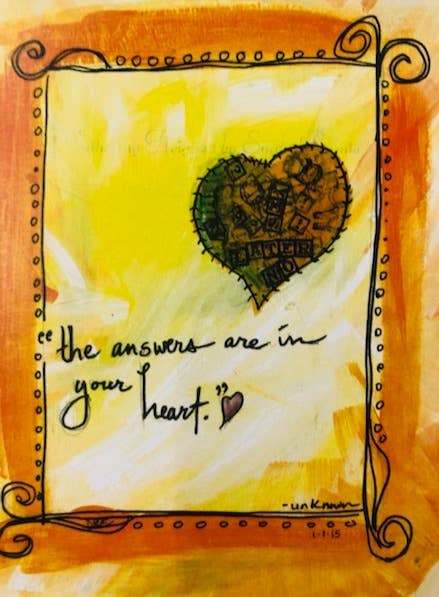 LATER
NO
"the answers are in
your heart."
-unknown
1-1-15